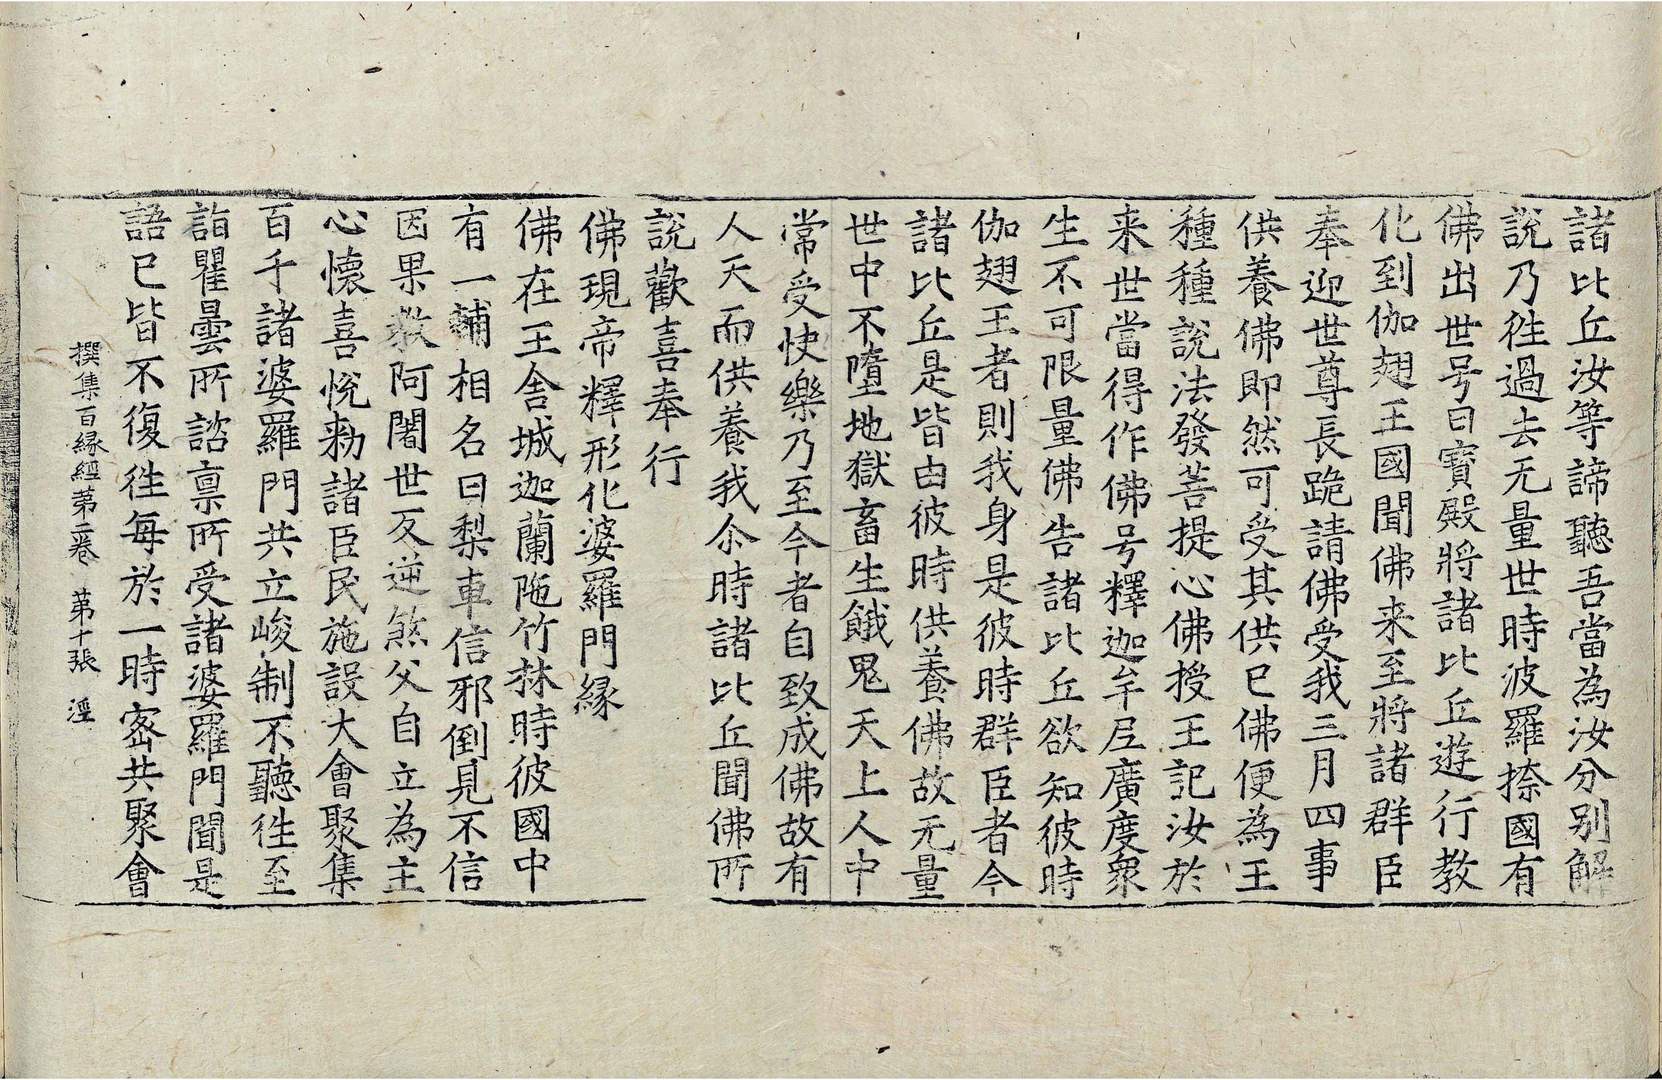 諸比丘汝等諦聽吾當為汝分別解
說乃往過去无量世時波羅㮈國有
佛出世号曰寶殿將諸比丘遊行教
化到伽翅王國聞佛来至將諸群臣
奉迎世尊長跪請佛受我三月四事
供養佛即然可受其供已佛便為王
種種說法發菩提心佛授王記汝於
来世當得作佛号釋迦牟尼廣度衆
生不可限量佛告諸比丘欲知彼時
伽翅王者則我身是彼時群臣者今
諸比丘是皆由彼時供養佛故无量
世中不墮地獄畜生餓鬼天上人中
常受快樂乃至今者自致成佛故有
人天而供養我尒時諸比丘聞佛所
說歡喜奉行
佛現帝釋形化婆羅門緣
佛在王舍城迦蘭陁竹林時彼國中
有一輔相名曰梨車信邪倒見不信
因果教阿闍世反逆煞父自立為主
心懷喜悅勑諸臣民施設大會聚集
百千諸婆羅門共立峻制不聽往至
詣瞿曇所諮禀所受諸婆羅門聞是
語已皆不復往每於一時密共聚會
撰集百緣經第二卷 第十張 淫